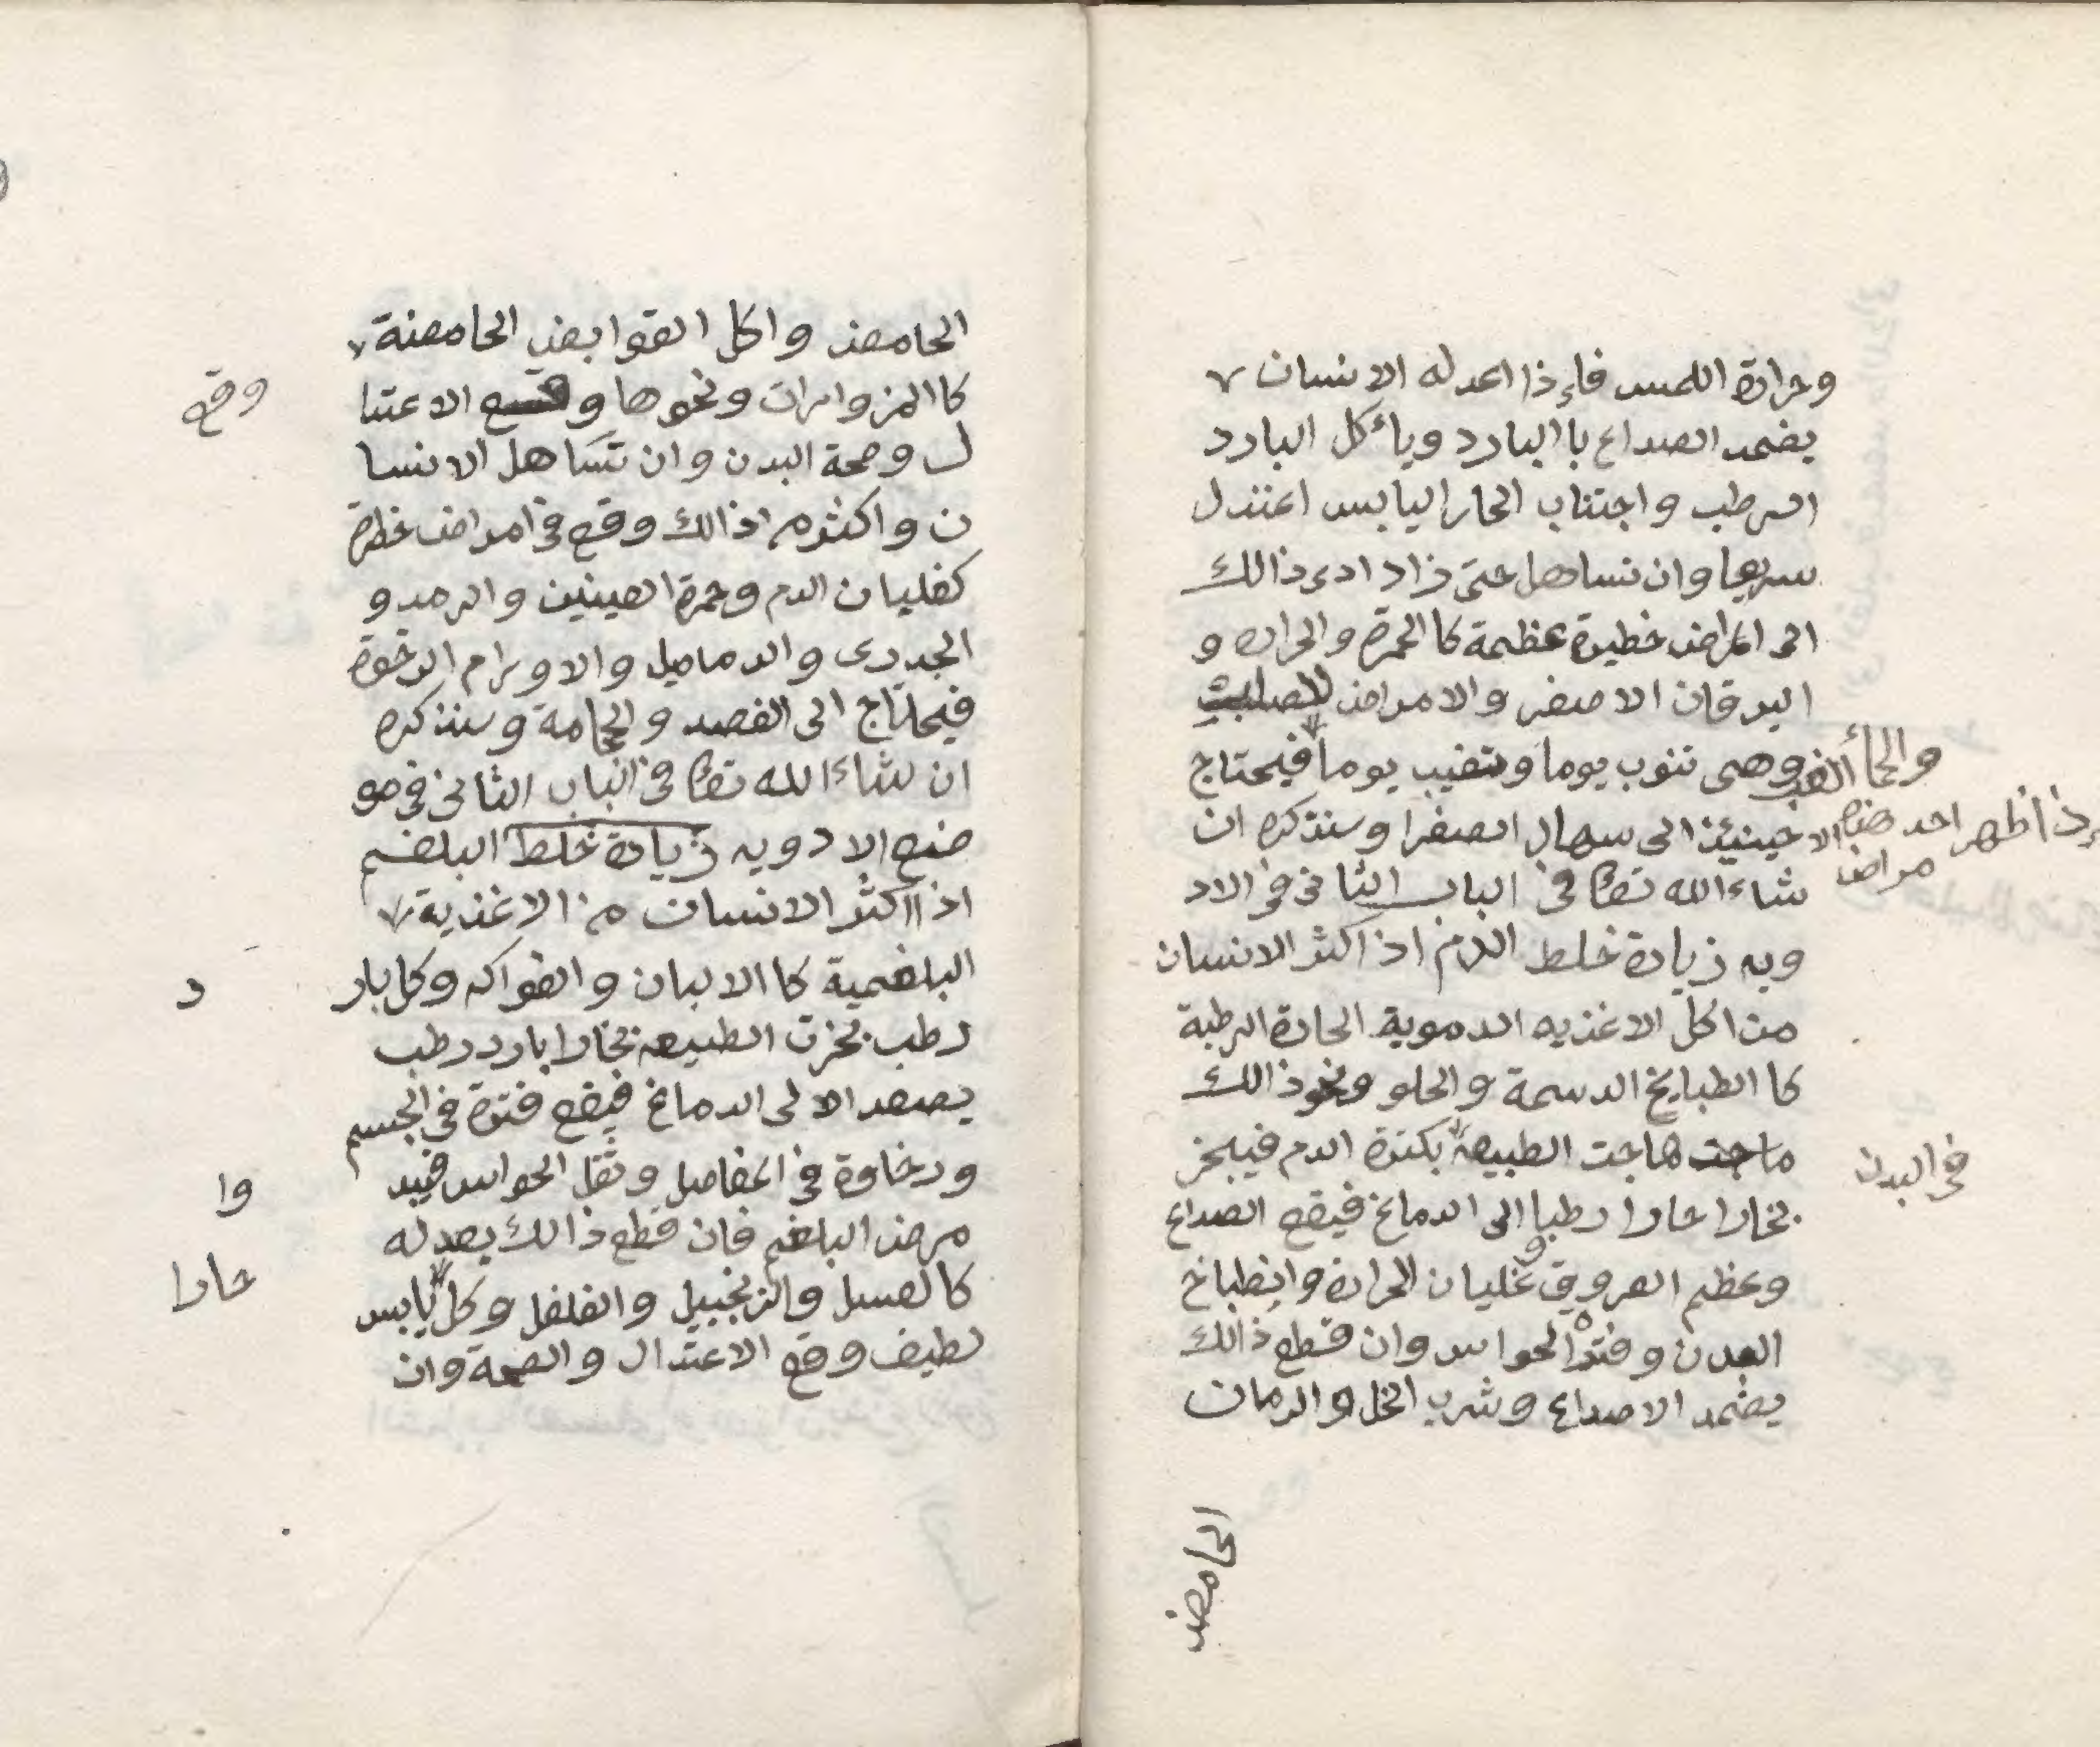 وحرارة اللمس فاءذا اعدله الانسان
بضمد الصداع با البارد وياءكل البارد
الرطب واجتناب الحار اليابس اعتدل
سريعا وان تساهل حتى زاد ادى ذالك
الى امراض خطيرة عظيمة كا الحمرة والحراره و
اليرقان الاصفر والامراض
والحمأ الغب وهى تنوب يوما وتغيب يوما فيحتاج
إذا ظهر احد هذه الا
مراض
حينئذ الى سهال الصفرا وسنذكره ان
شاء الله تعا فى الباب الثانى فى الاد
ويه زيادة خلط الدم اذ اكثر الانسان
من اكل الاغذيه الدموية الحارة الرطبة
كا الطبايخ الدسمة والحلو ونحو ذالك
ماجت هاجت الطبيعة بكثرة الدم فيبخر
فى البدن
بخارا حارا رطبا الى الدماغ فيقع الصداع
وعظم العروق وغليان الحرارة وانطباخ
البدن وفترة الحواس وان قطع ذالك
يضمد الاصداع وشرب الخل والرمان
الحامض
الحامض واكل القوابض الحامضة
كا المزوارات ونحوها و الاعتدا
وقع
ل وصحة البدن وان تساهل الانسا
ن واكثر من ذالك وقع فى امراض خطرة
كغليان الدم وحمرة العينين والرمد و
الجدرى والدماميل والاورام الرخوة
فيحتاج الى الفصد والحجامة وسنذكره
ان شاء الله تعا فى الباب الثانى فى مو
ضع الادويه زيادة خلط البلغم
اذا اكثر الانسان من الاغذية
البلغمية كا الالبان والفواكه وكل بار
د
رطب بخرت الطبيعه بخارا بارد رطب
يصعد الا لى الدماغ فيقع فترة فى الجسم
ورخاوة فى المفاصل وثقل الحواس فيبد
وا
مرض البلغم فان قطع ذالك بعد له
كا لعسل والزنجبيل والفلفل وكل يابس
حارا
لطيف وقع الاعتدال والصحة وان